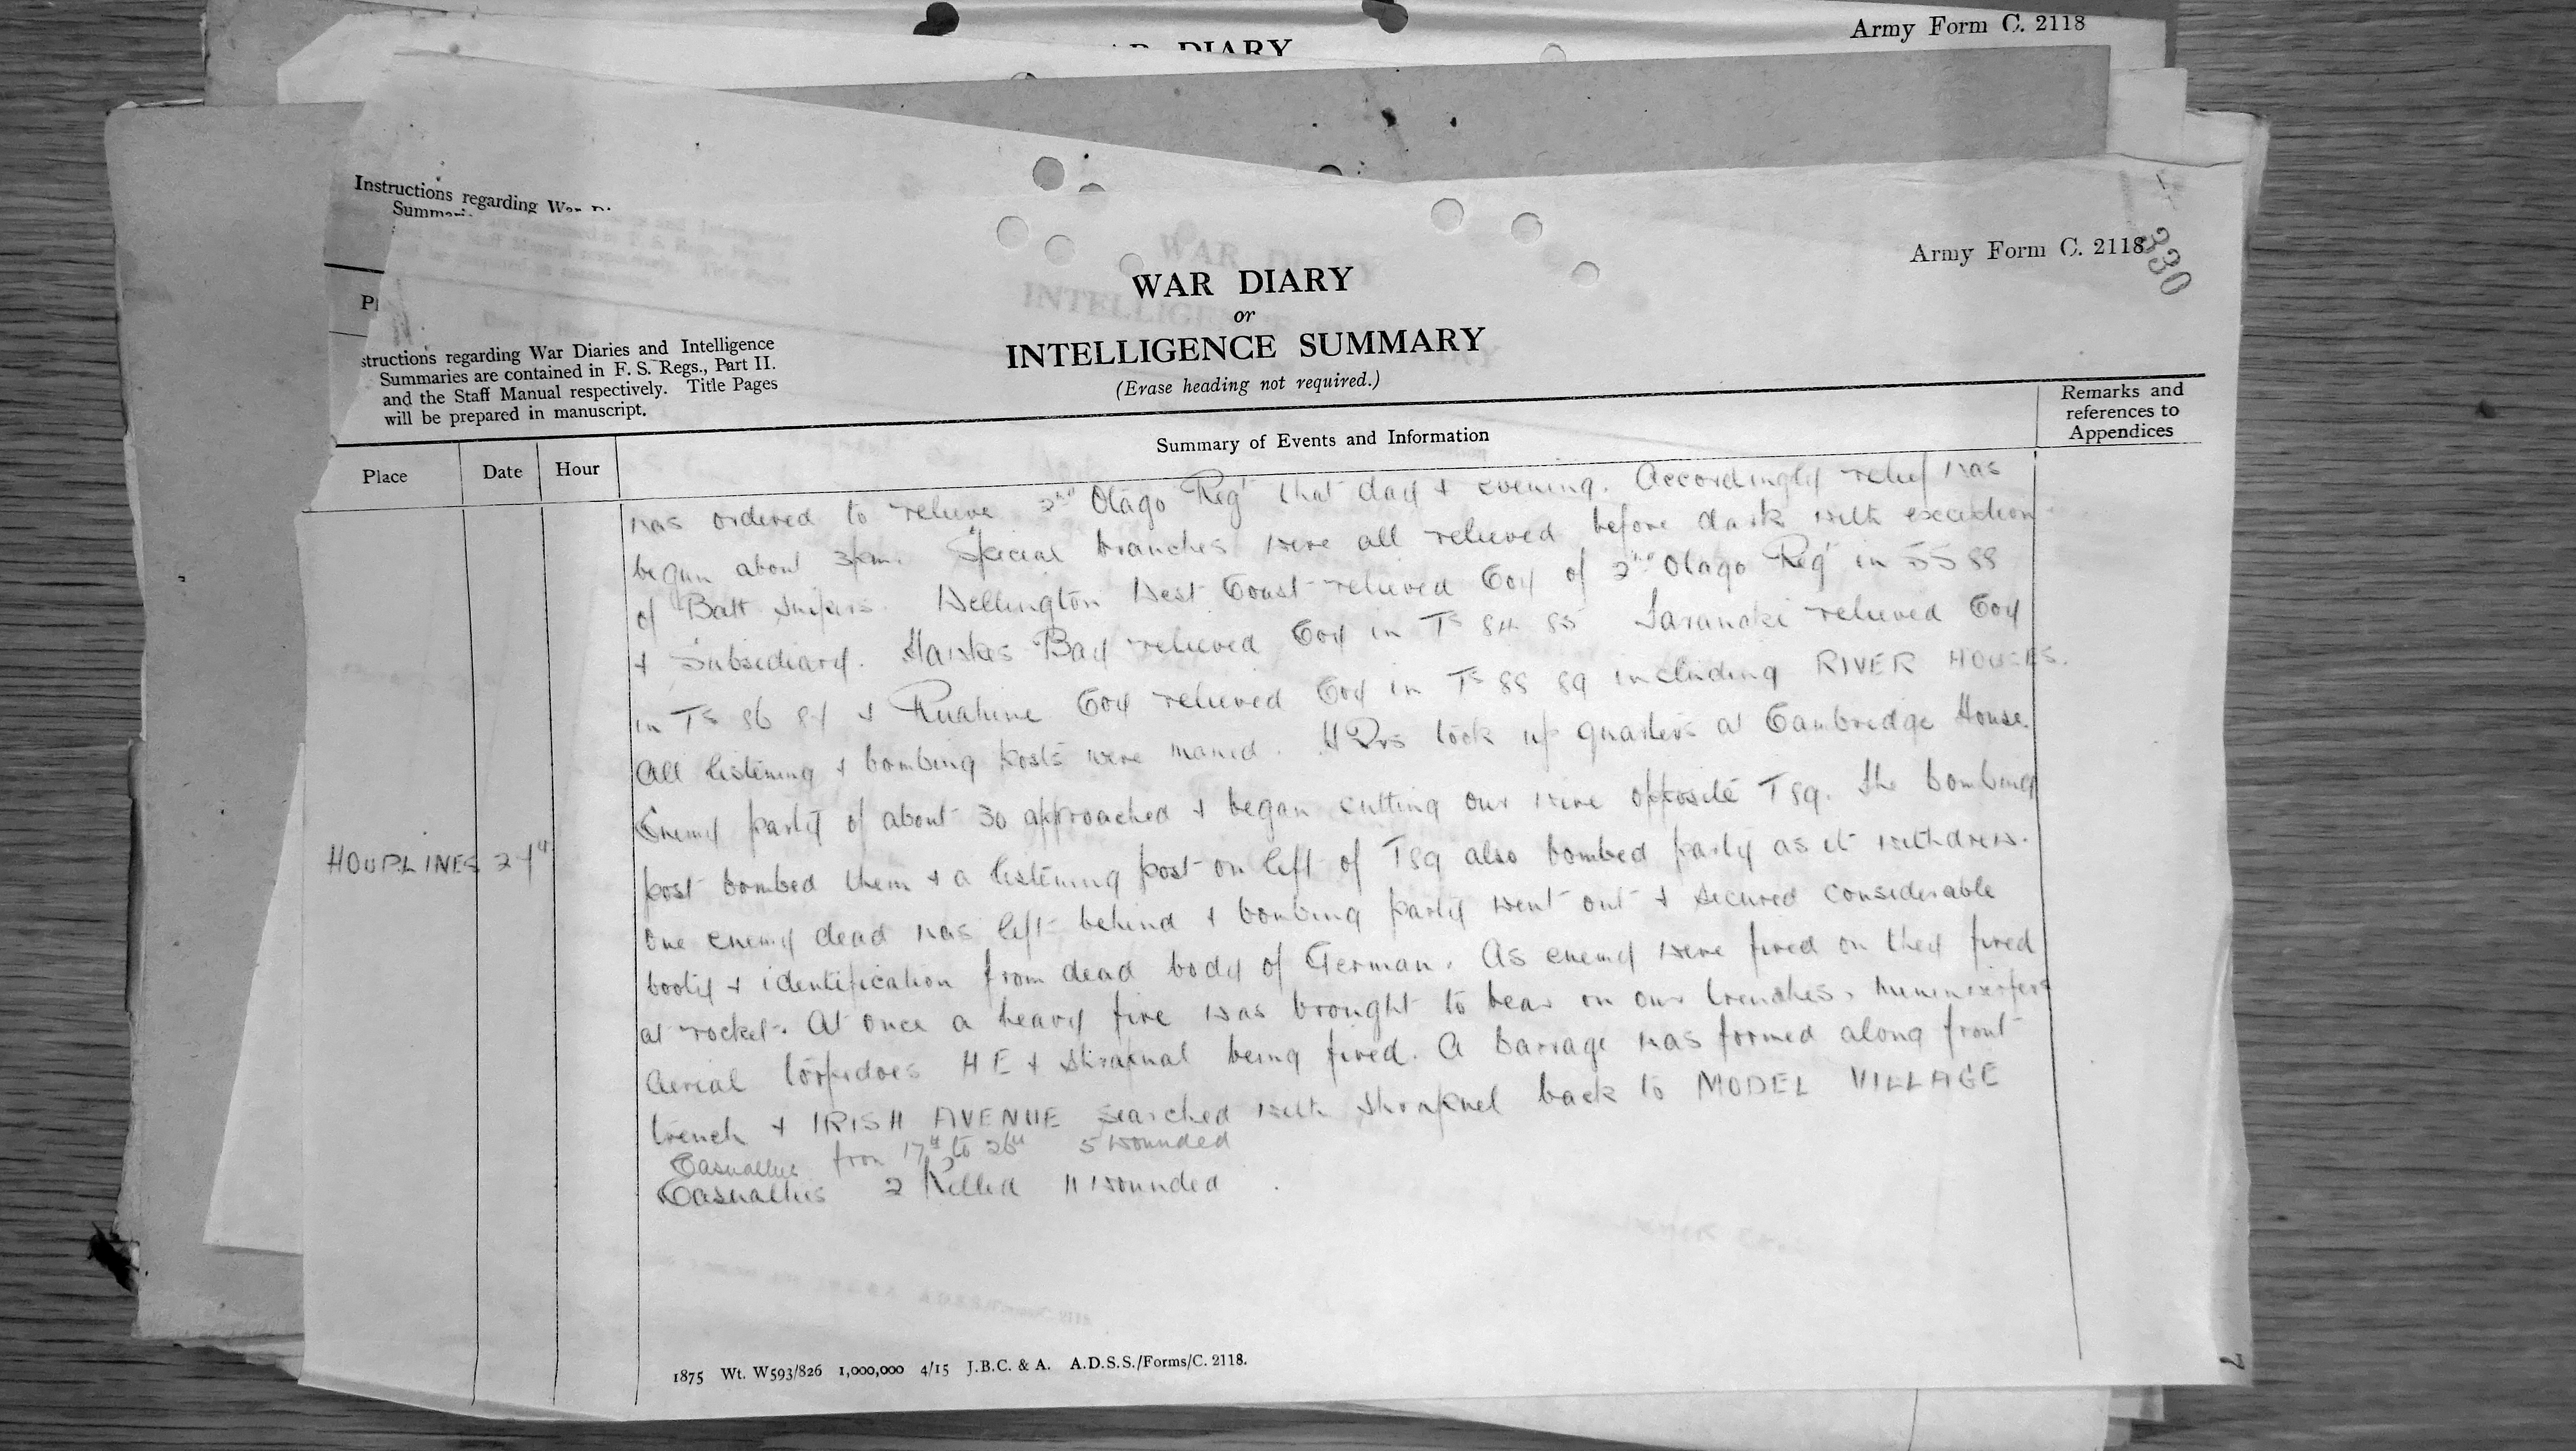 Army Form C. 2118
WAR DIARY
Instructions regarding War Di
Summari
Army Form C. 2118
330
WAR DIARY
or
INTELLIGENCE SUMMARY
(Erase heading not required.)
structions regarding War Diaries and Intelligence
Summaries are contained in F. S. Regs., Part II.
and the Staff Manual respectively. Title Pages
will be prepared in manuscript.
Place
Date
Hour
Summary of Events and Information
Remarks and
references to
Appendices
was ordered to relieve 2nd Olago Regt that day & evening. Accordingly relief was
began about 3pm. Special branches were all relieved before dark with exception
of Batt Snipers. Wellington West Coast relieved Coy of 2nd Otago Regt in SS 88
& Subsediary. Hawkes Bay relieved Coy in Ts 84 85 Taranaki relieved Coy
in Ts 86 87 & Ruahine Coy relieved Coy in Ts 88 89 including RIVER HOUSES.
All listening & bombing posts were maned. HQrs took up quarters at Cambridge House.
HOUPLINES 27th
Enemy party of about 30 approached & began cutting our wire opposite T89. The bombing
post bombed them & a listening post on left of T89 also bombed party as it withdrew.
One enemy dead was left behind & bombing party went out & secured considerable
booty & identification from dead body of German. As enemy were fired on they fired
at rocket. At once a heavy fire was brought to bear on our trenches,
Aerial torpedoes HE & Shrapnal being fired. A barrage was formed along front
trench & IRISH AVENUE searched with Shrapnel back to MODEL VILLAGE
Casualties from 17th to 26th 5 wounded
Casualties 2 Killed 11 wounded
1875 Wt. W593/826 1,000,000 4/15 J.B.C. & A. A.D.S.S./Forms/C. 2118.